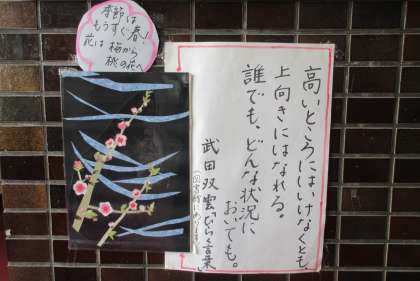 季節は
もうすぐ春!
花は梅から
桃の花へ
高いところにはいけなくとも、
上向きにはなれる。
誰でも、どんな状況に
おいても。
武田双雲「ひらく言葉」